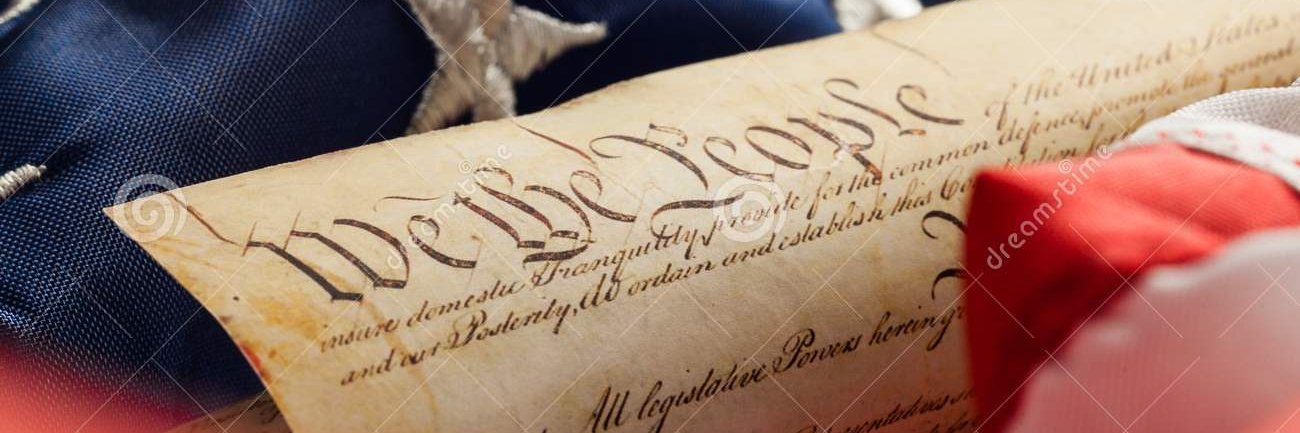 We the People of the United States
insure domestic Tranquility, provide for the common defence, promote the general
and our Posterity, do ordain and establish this Constitution for
All legislative Powers herein
Representatives
dreamstime
dreamstime